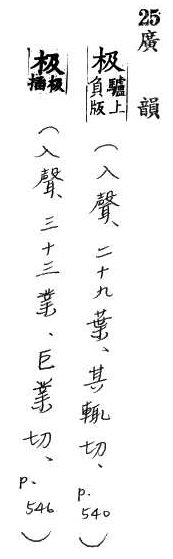 25廣韻
极驢上負版(入聲、二十九葉、其輒切、p.540)
极插极(入聲、三十三業、巨業切、p.546)